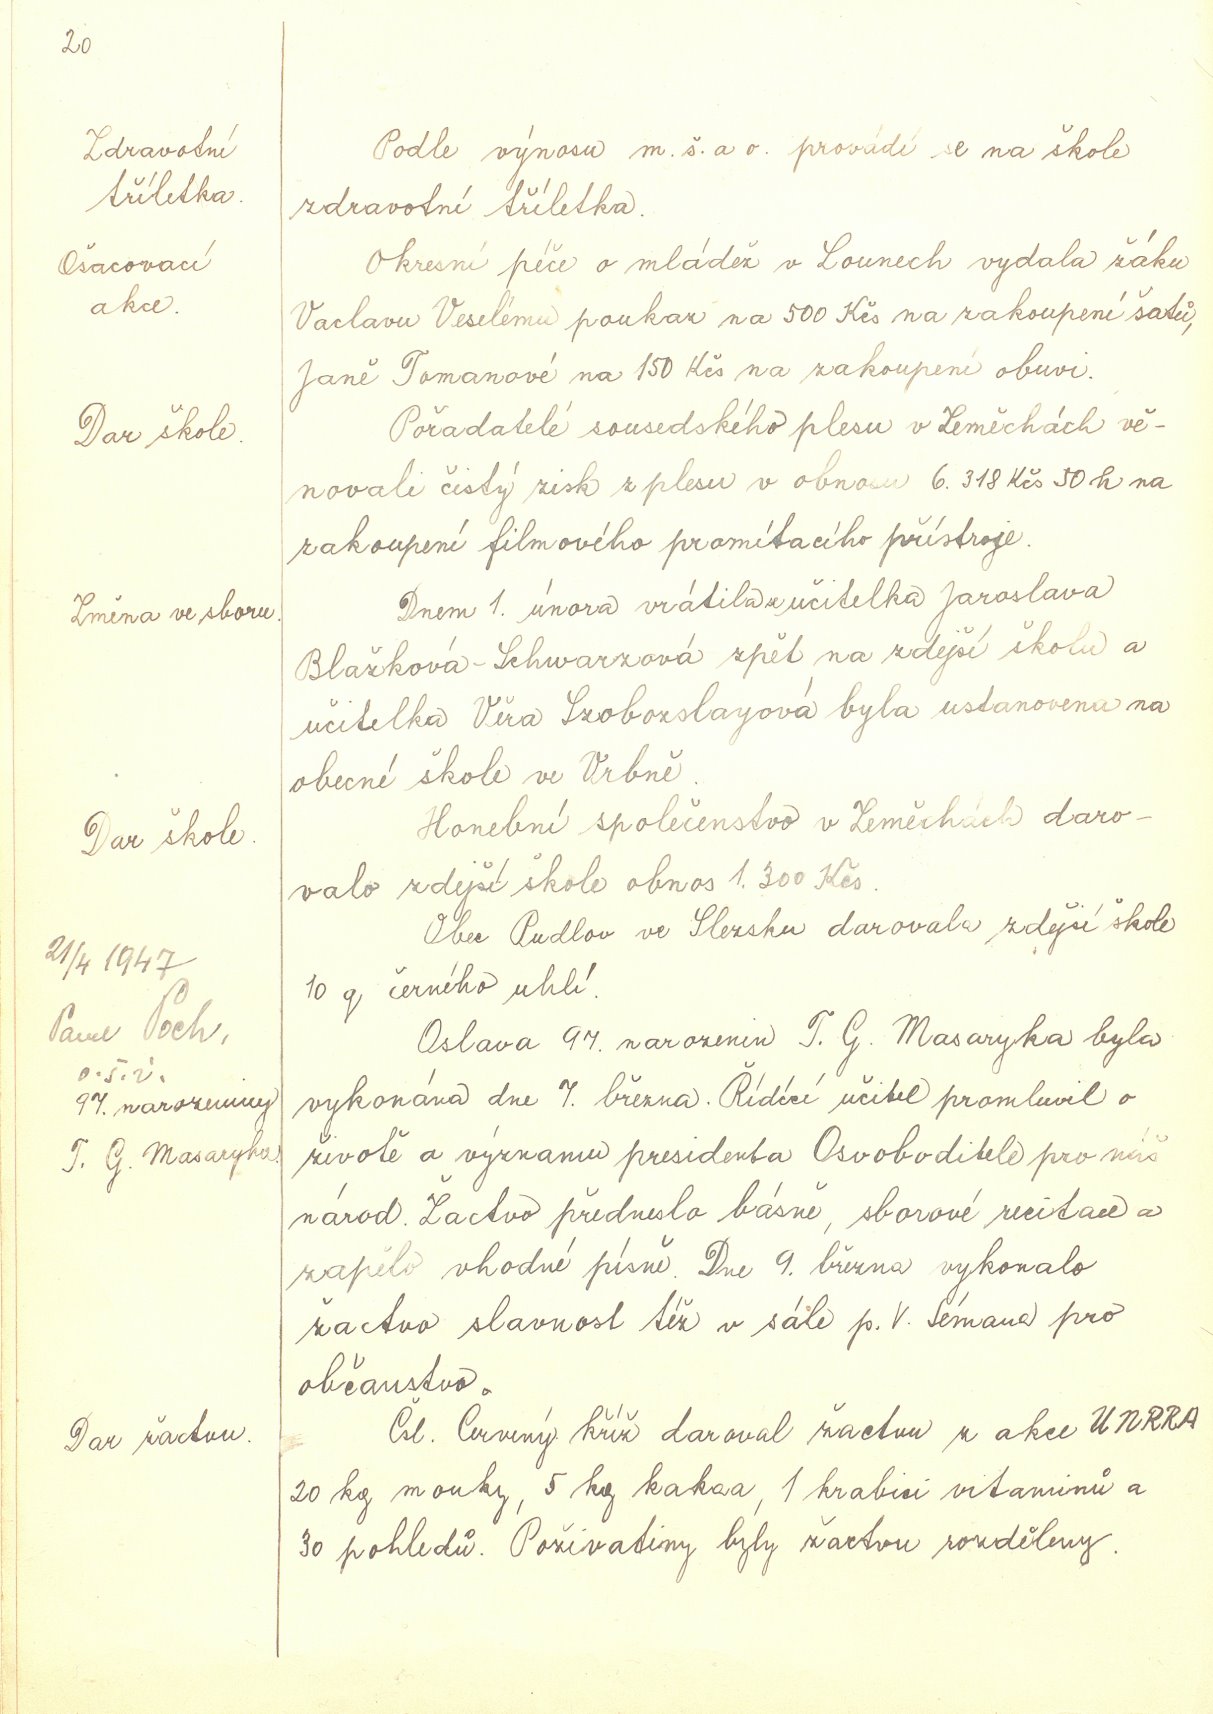 20
Zdravotní
tříletka.
Podle výnosu m. š. a o. provádí se na škole
zdravotní tříletka.
Ošacovací
akce.
Okresní péče o mládež v Lounech vydala žáku
Vaclavu Veselému poukaz na 500 Kčs na zakoupení šatů,
Janě Tomanové na 150 Kčs na zakoupení obuvi.
Dar škole.
Pořadatelé sousedského plesu v Zeměchách vě-
novali čistý zisk z plesu v obnosu 6.318 Kčs 50 h na
zakoupení filmového promítacího přístroje.
Změna ve sboru.
Dnem 1. února vrátila se učitelka Jaroslava
Blažková-Schwarzová zpět na zdejší školu a
učitelka Věra Szobozslayová byla ustanovena na
obecné škole ve Vrbně.
Dar škole.
Honební společenstvo v Zeměchách daro-
valo zdejší škole obnos 1.300 Kčs.
Obec Pudlov ve Slezsku darovala zdejší škole
10 q černého uhlí.
21/4 1947
Pavel Poch,
o.š.i.
97. narozeniny
T. G. Masaryka.
Oslava 97. narozenin T. G. Masaryka byla
vykonána dne 7. března. Řídící učitel promluvil o
životě a významu presidenta Osvoboditele pro náš
národ. Žactvo předneslo básně, sborové recitace a
zapělo vhodné písně. Dne 9. března vykonalo
žactvo slavnost též v sále p. V. Sémana pro
občanstvo.
Dar žactvu.
Čsl. Červený kříž daroval žactvu z akce UNRRA
20 kg mouky, 5 kg kakaa, 1 krabici vitaminů a
30 pohledů. Poživatiny byly žactvu rozděleny.